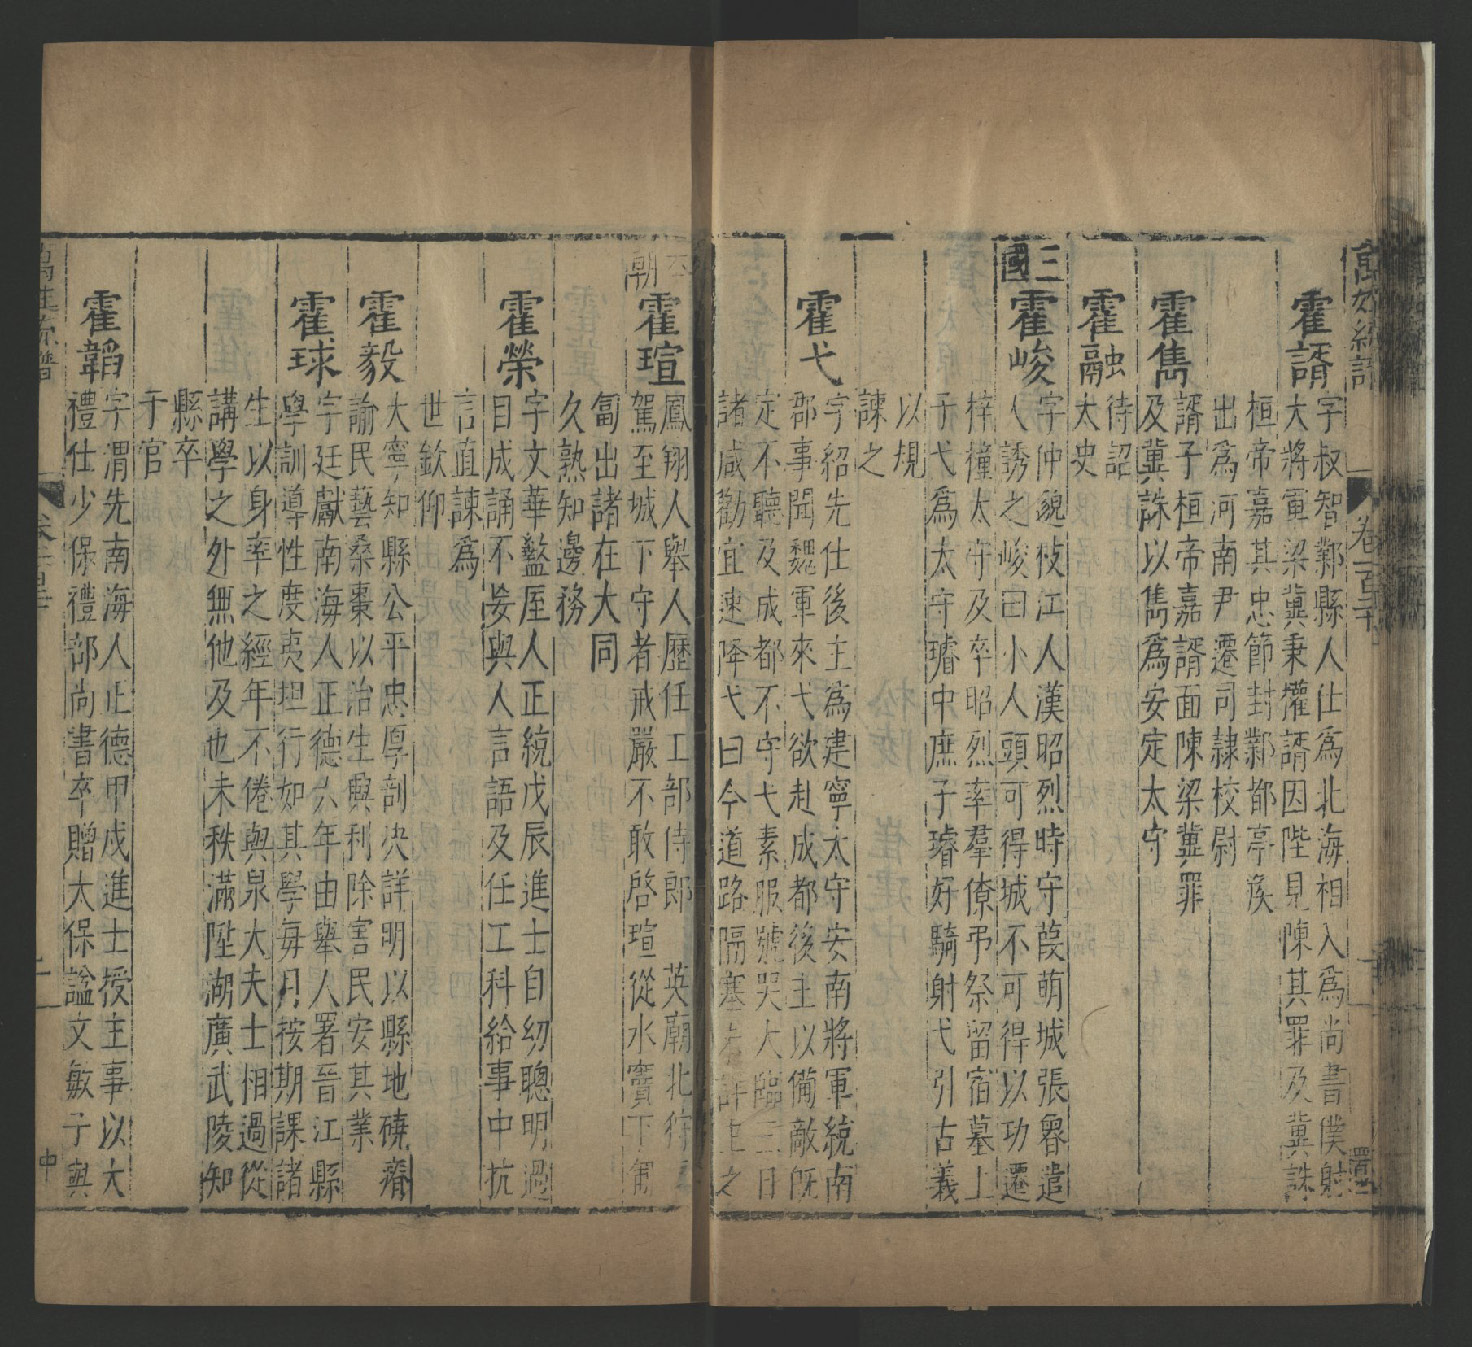 霍諝
字叔智鄴縣人仕爲北海相入爲尚書僕射
大將軍梁冀秉權諝因陛見陳其罪及冀誅
桓帝嘉其忠節封鄴都亭侯
出爲河南尹遷司隷校尉
霍雋
諝子桓帝嘉諝面陳梁冀罪
及冀誅以雋爲安定太守
霍融
待詔
太史
三國
霍峻
字仲邈枝江人漢昭烈時守葭萌城張魯遣
人誘之峻曰小人頭可得城不可得以功遷
梓潼太守及卒昭烈率羣僚弔祭留宿墓上
子弋爲太守璿中庶子璿好騎射弋引古義
以規
諫之
霍弋
字紹先仕後主爲建寧太守安南將軍統南
郡事聞魏軍來弋欲赴成都後主以備敵旣
定不聽及成都不守弋素服號哭大臨三日
諸咸勸宜速降弋曰今道路隔塞未詳主之
本朝
霍瑄
鳳翔人舉人歷任工部侍郎 英廟北狩
駕至城下守者戒嚴不敢啓瑄從水竇下匍
匐出諸在大同
久熟知邊務
霍榮
字文華盩厔人正統戊辰進士自幼聰明過
目成誦不妄與人言語及任工科給事中抗
言直諫爲
世欽仰
霍毅
大寧知縣公平忠厚剖決詳明以縣地磽瘠
諭民藝桑棗以治生興利除害民安其業
霍球
字廷獻南海人正德六年由舉人署晋江縣
學訓導性度夷坦行如其學每月按期課諸
生以身率之經年不倦與泉大夫士相過從
講學之外無他及也未秩滿陞湖廣武陵知
縣卒
于官
霍韜
字渭先南海人正德甲戌進士授主事以大
禮仕少保禮部尚書卒贈大保謚文敏子與